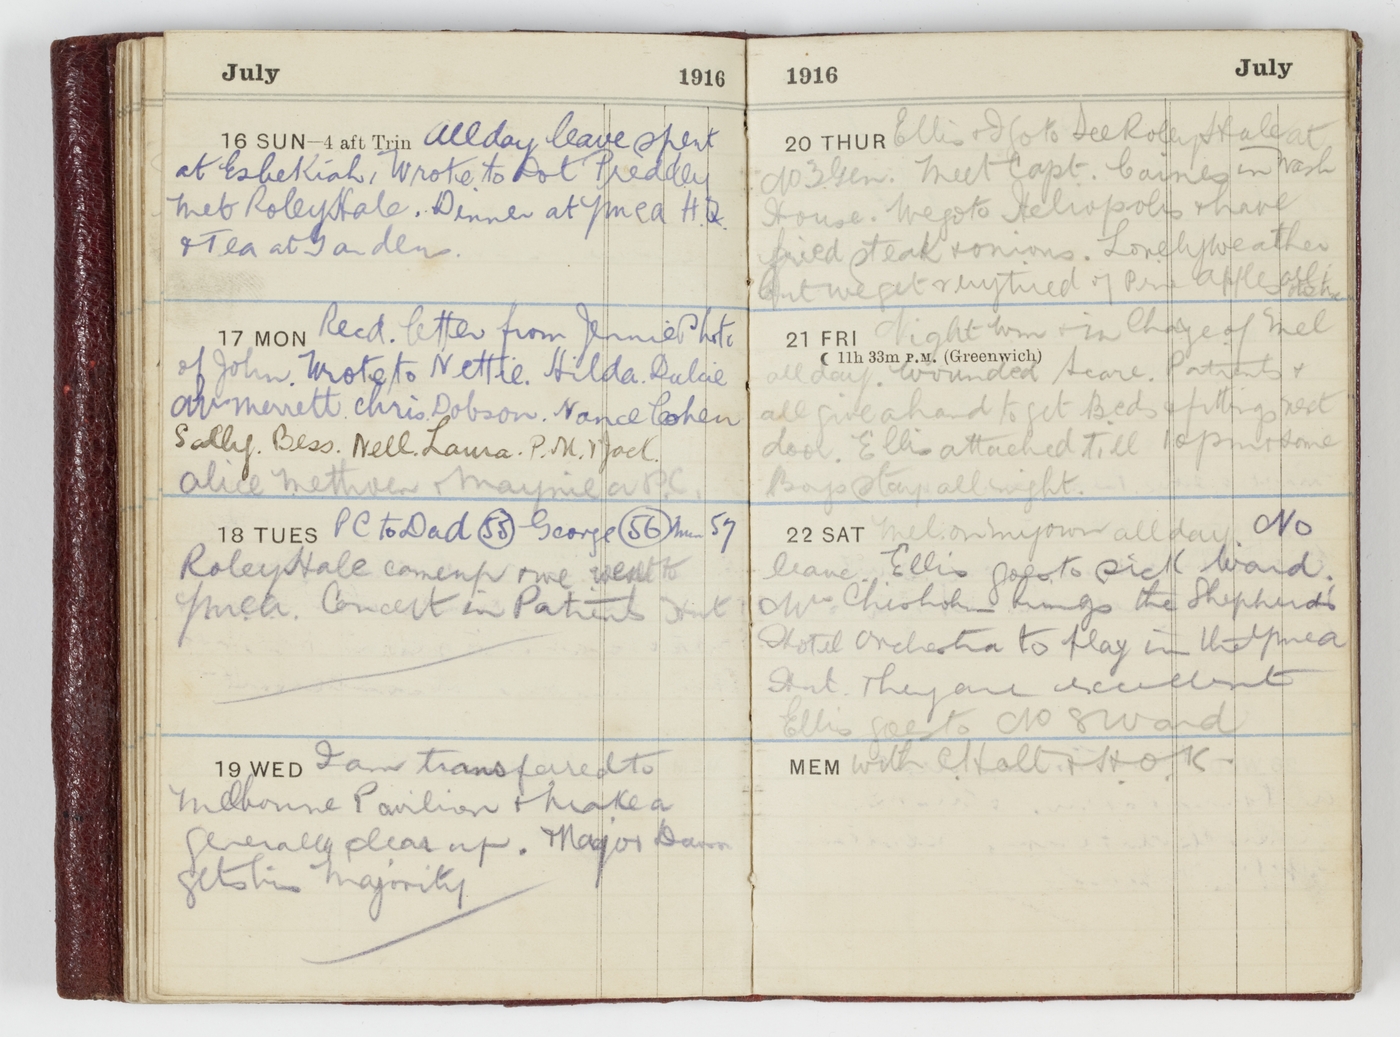 July 1916
16 SUN—4 aft Trin All day leave spent
at Esbekiah, Wrote to Dot Preddey
Met Roley Hale. Dinner at Ymca H.Q.
& Tea at Gardens.
17 MON Recd. letter from Jennie Photo
of John. Wrote to Nettie. Hilda. Dulcie
Merrett. Chris. Dobson. Nance Cohen
Sally. Bess. Nell. Laura. P.M. & Jack.
Alice Methven & Maynie a P.C.
18 TUES PC to Dad 55 George 56 57
Roley Hale came up & we went to
Ymca. Concert in Patients Hut
19 WED I am transferred to
Melbourne Pavilion & make a
generally clear up. Major Dawn
gets his Majority
1916 July
20 THUR Ellis & I go to see Roley Hale at
No 3 Gen. Meet Capt. Caines in Nash
House. We go to Heliopolis & have
fried steak & onions. Lovely weather
but we get very tired of Pine apple
21 FRI Night & in Charge of Mel
☾ 11h 33m P.M. (Greenwich)
all day. Wounded scare. Patients &
all give a hand to get Beds & fittings next
door. Ellis attached till 10 pm & some
Boys stay all night.
22 SAT Mel. on my own all day. No
leave. Ellis goes to sick Ward.
Mrs Chisholm brings the Shepherds
Hotel Orchestra to play in the Ymca
Hut. They are excellent
Ellis goes to No 8 Ward
MEM with C. Halt. & H.O.K.